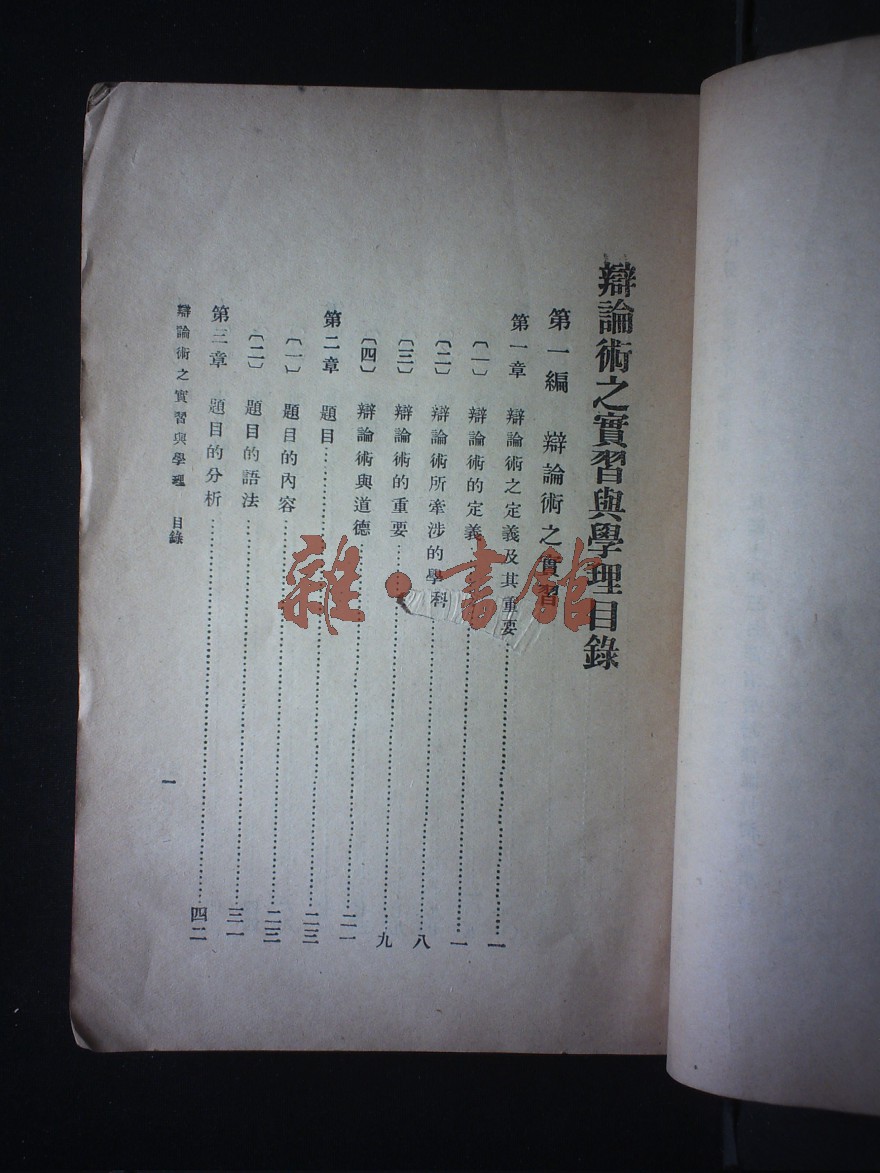 辯論術之實習與學理目錄
第一編 辯論術之實習
第一章 辯論術之定義及其重要……一
〔一〕 辯論術的定義……一
〔二〕 辯論術所牽涉的學科……八
〔三〕 辯論術的重要……九
〔四〕 辯論術與道德……二一
第二章 題目……二三
〔一〕 題目的內容……二三
〔二〕 題目的語法……三一
第三章 題目的分析……四二
辯論術之實習與學理 目錄
一
雜·書館